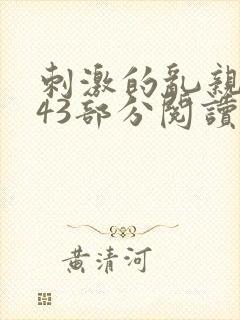 刺激的亂親
43部分閱讀
黃清河